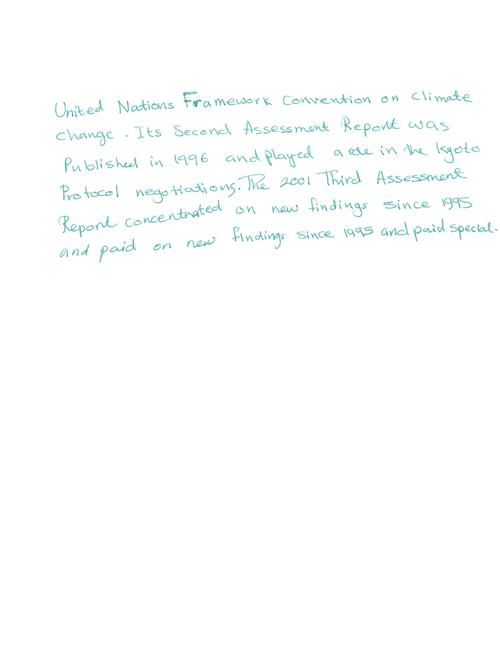 United Nations Framework Convention on climate
change . Its Second Assessment Report was
Published in 1996 and played a role in the kyoto
Protocol negotiations. The 2001 Third Assessment
Report concentrated on new findings since 1995
and paid on new findings since 1995 and paid special.